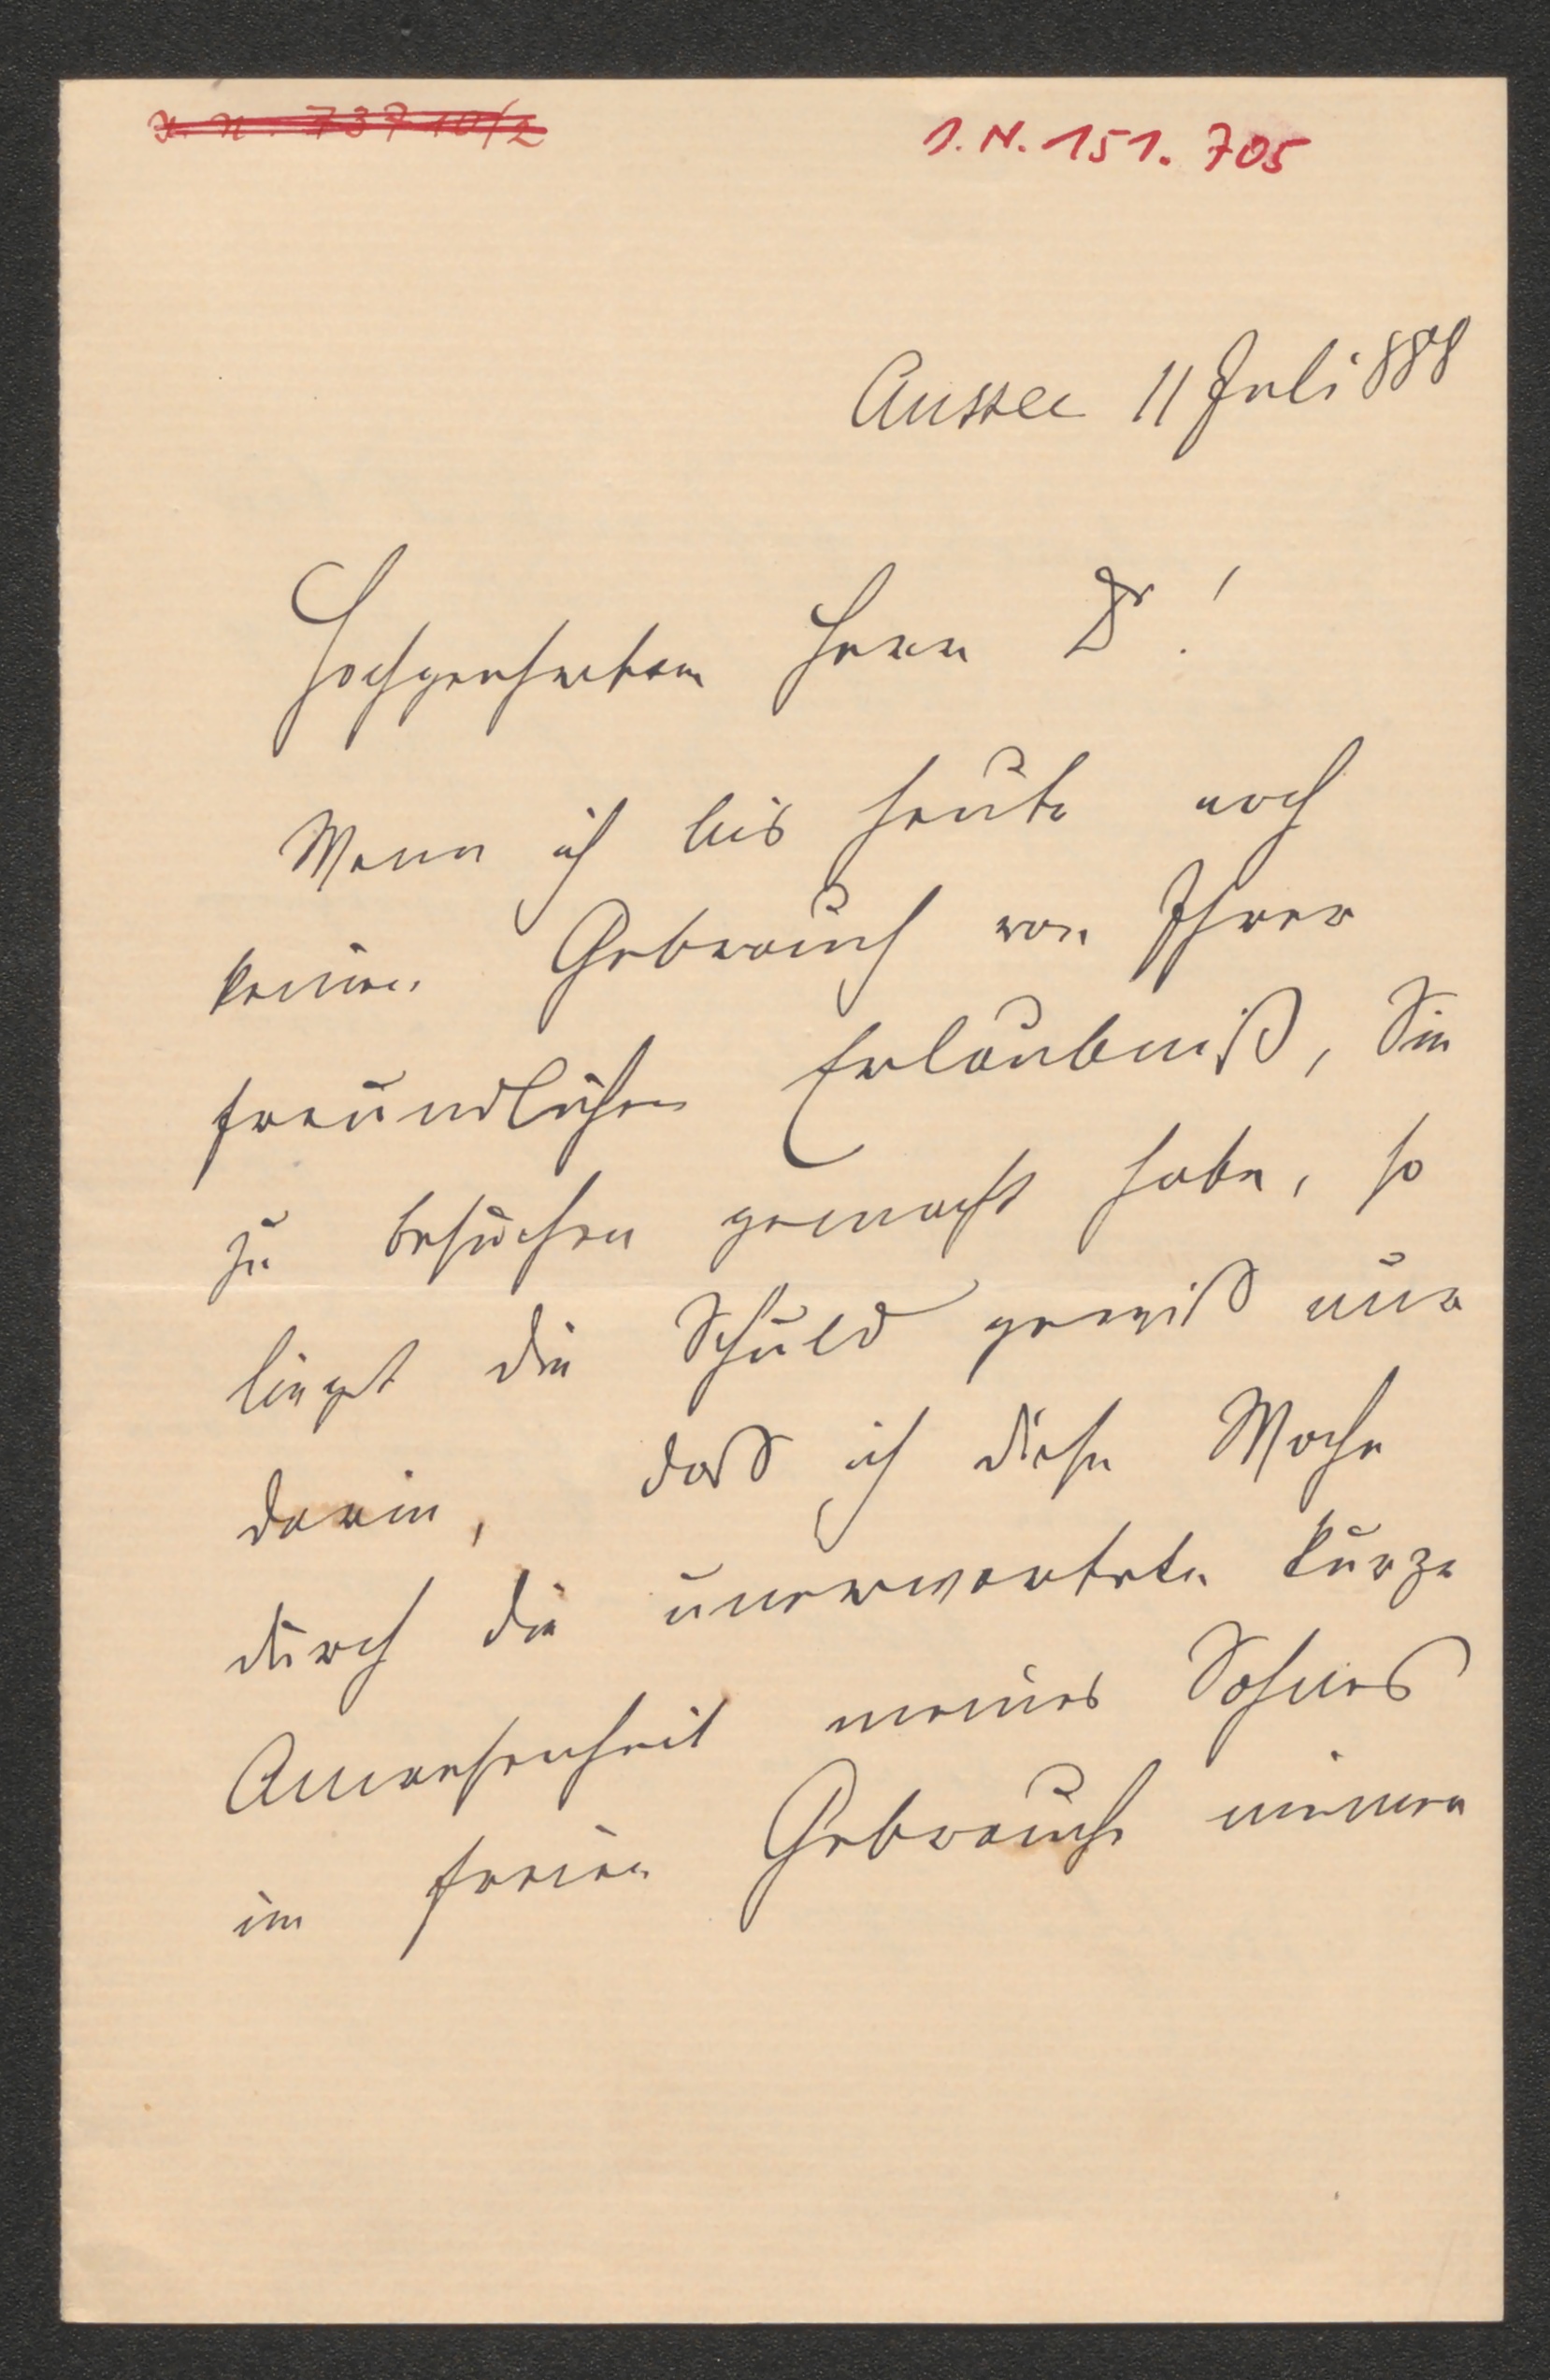 I. N. 73710/2
I.N. 151.705
Aussee 11 Juli 888
Hochgeehrtem Herrn Dr!
Wenn ich bis heute noch
keinen Gebrauch von Ihrer
freundlichen Erlaubniß, Sie
zu besuchen gemacht habe, so
liegt die Schuld gewiß nur
darin, daß ich diese Woche
durch die unerwartete kurze
Anwesenheit meines Sohnes
im freien Gebrauche meiner